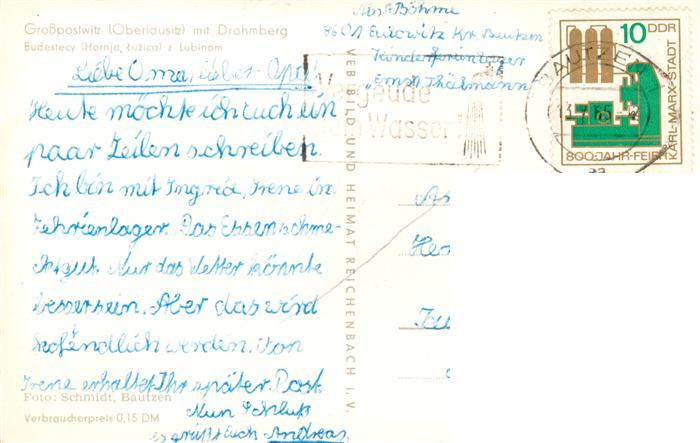 Großpostwitz (Oberlausitz) mit Drohmberg
Budestecy (Hornja Łužica) z Lubinom
Liebe Oma, lieber Opa!
Heute möchte ich euch ein
paar Zeilen schreiben.
Ich bin mit Ingrid, Irene in
Fehrienlager. Das Essen schme-
ckt gut. Nur das Wetter könnte
besser sein. Aber das wird
hofendlich werden. Von
Irene erhaltet Ihr später Post.
Nun Schluß
es grüßt euch Andreas.
Foto: Schmidt, Bautzen
Verbraucherpreis 0,15 DM
VEB BILD UND HEIMAT REICHENBACH i. V.
Böhme
8601 Kr. Bautzen
Kinderferienlager
"Ernst Thälmann"
Vergeude
kein Wasser!
BAUTZEN
10 DDR
KARL-MARX-STADT
800-JAHR-FEIER